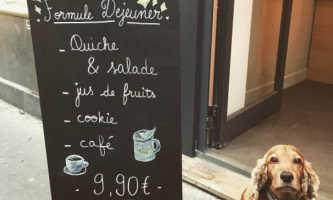 Formule Dejeuner
- Quiche
& salade
- jus de fruits
- cookie
- café
- 9,90€ -